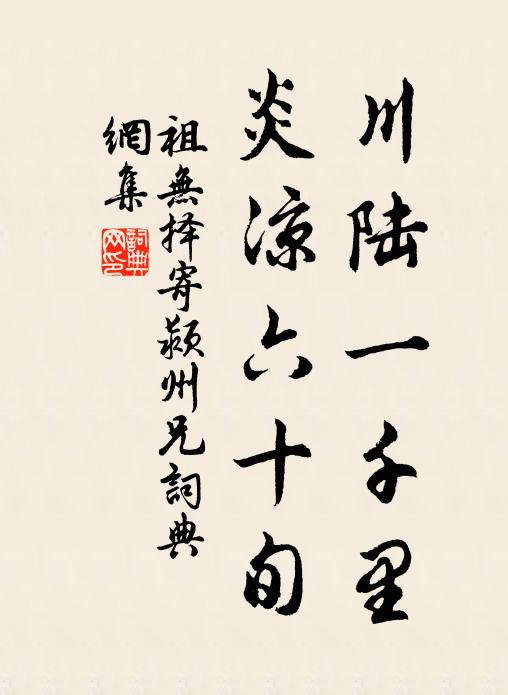 川陆一千里
炎凉六十旬
祖無择寄颍州兄詞典
網集
詞典
网印